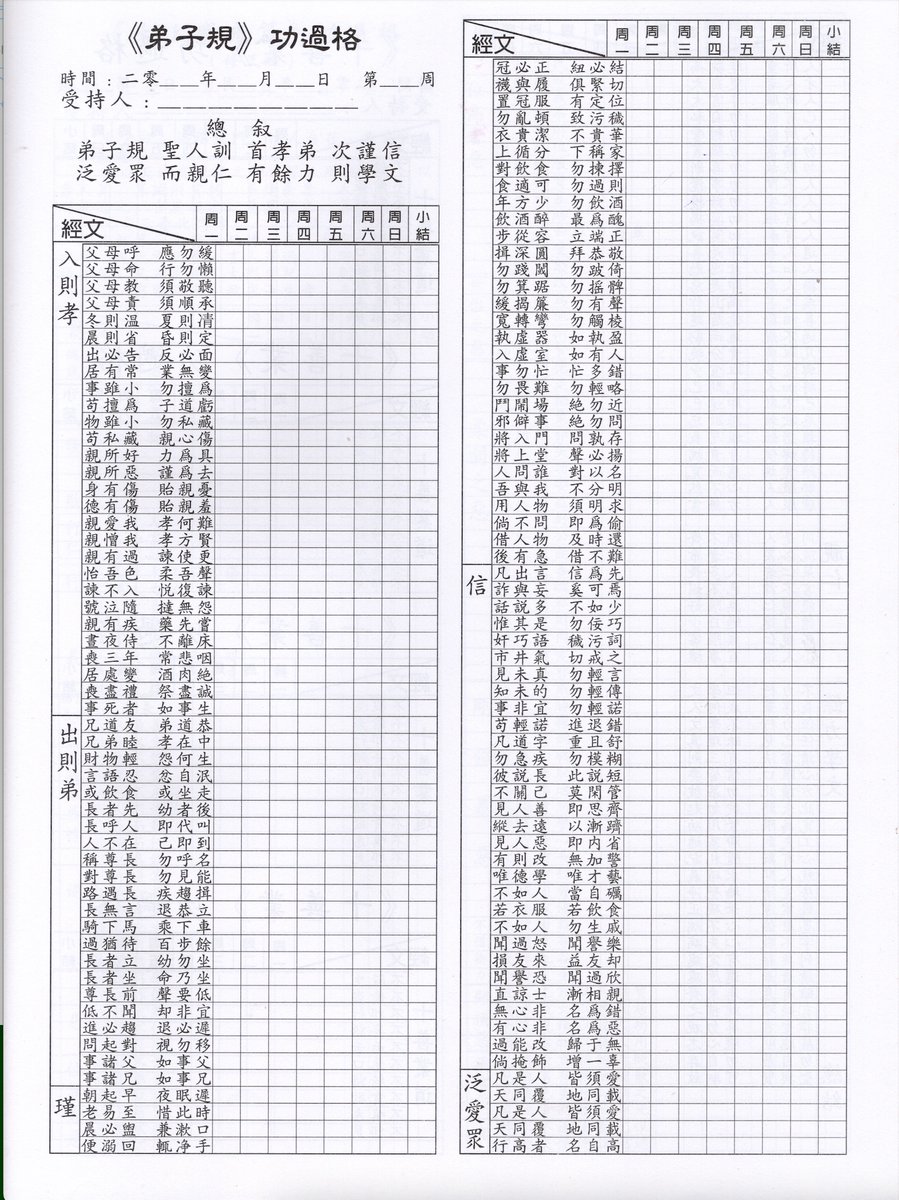 《弟子規》功過格
時間：二零___年___月___日 第___周
受持人：____________
總 叙
弟子規 聖人訓 首孝弟 次謹信
泛愛眾 而親仁 有餘力 則學文
經文 周一 周二 周三 周四 周五 周六 周日 小結
入則孝
父母呼 應勿緩
父母命 行勿懶
父母教 須敬聽
父母責 須順承
冬則温 夏則凊
晨則省 昏則定
出必告 反必面
居有常 業無變
事雖小 勿擅爲
苟擅爲 子道虧
物雖小 勿私藏
苟私藏 親心傷
親所好 力爲具
親所惡 謹爲去
身有傷 貽親憂
德有傷 貽親羞
親愛我 孝何難
親憎我 孝方賢
親有過 諫使更
怡吾色 柔吾聲
諫不入 悦復諫
號泣隨 撻無怨
親有疾 藥先嘗
晝夜侍 不離床
喪三年 常悲咽
居處變 酒肉絶
喪盡禮 祭盡誠
事死者 如事生
出則弟
兄道友 弟道恭
兄弟睦 孝在中
財物輕 怨何生
言語忍 忿自泯
或飲食 或坐走
長者先 幼者後
長呼人 即代叫
人不在 己即到
稱尊長 勿呼名
對尊長 勿見能
路遇長 疾趨揖
長無言 退恭立
騎下馬 乘下車
過猶待 百步餘
長者立 幼勿坐
長者坐 命乃坐
尊長前 聲要低
低不聞 却非宜
進必趨 退必遲
問起對 視勿移
事諸父 如事父
事諸兄 如事兄
瑾
朝起早 夜眠遲
老易至 惜此時
晨必盥 兼漱口
便溺回 輒净手
經文 周一 周二 周三 周四 周五 周六 周日 小結
冠必正 紐必結
襪與履 俱緊切
置冠服 有定位
勿亂頓 致污穢
衣貴潔 不貴華
上循分 下稱家
對飲食 勿揀擇
食適可 勿過則
年方少 勿飲酒
飲酒醉 最爲醜
步從容 立端正
揖深圓 拜恭敬
勿踐閾 勿跛倚
勿箕踞 勿摇髀
緩揭簾 勿有聲
寬轉彎 勿觸棱
執虚器 如執盈
入虚室 如有人
事勿忙 忙多錯
勿畏難 勿輕略
鬥鬧場 絶勿近
邪僻事 絶勿問
將入門 問孰存
將上堂 聲必揚
人問誰 對以名
吾與我 不分明
用人物 須明求
倘不問 即爲偷
借人物 及時還
後有急 借不難
信
凡出言 信爲先
詐與妄 奚可焉
話説多 不如少
惟其是 勿佞巧
奸巧語 穢污詞
市井氣 切戒之
見未真 勿輕言
知未的 勿輕傳
事非宜 勿輕諾
苟輕諾 進退錯
凡道字 重且舒
勿急疾 勿模糊
彼説長 此説短
不關己 莫閑管
見人善 即思齊
縱去遠 以漸躋
見人惡 即内省
有則改 無加警
唯德學 唯才藝
不如人 當自礪
若衣服 若飲食
不如人 勿生戚
聞過怒 聞譽樂
損友來 益友却
聞譽恐 聞過欣
直諒士 漸相親
無心非 名爲錯
有心非 名爲惡
過能改 歸于無
倘掩飾 增一辜
泛愛眾
凡是人 皆須愛
天同覆 地同載
凡是人 皆須愛
天同覆 地同載
行高者 名自高